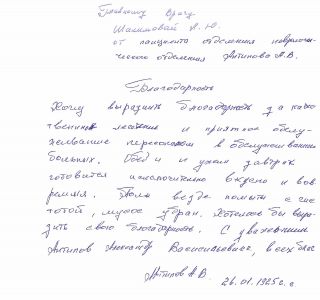 Главному врачу
Шалимовой А. Ю.
от пациента отделения невроло-
ческого отделения Антипова А.В.
Благодарность
Хочу выразить благодарность за каче
ственное лечение и приятное обслу-
живание персоналом в обслуживании
больных. Обед и ужин завтрак
готовится исключительно вкусно и вов
ремя. Полы везде помыты с чис
тотой, мусор убран. Хотелось бы выра-
зить свою благодарность. С уважением
Антипов Александр Васильевич,
Антипов А.В.
26.01.1925г.